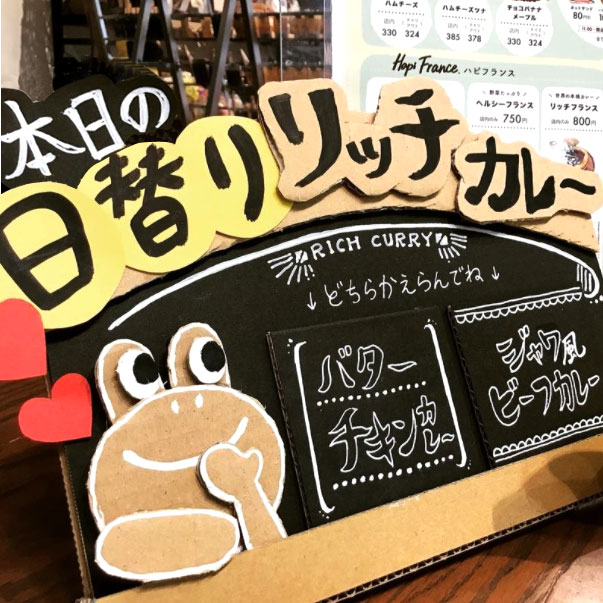 ハムチーズ
店内 テイクアウト
330 324
ハムチーズツナ
店内 テイクアウト
385 378
チョコバナナ
メープル
店内 テイクアウト
330 324
80円
Hopi France. ハピフランス
野菜たっぷり
ヘルシーフランス
店内のみ 750円
世界の本格カレー
リッチフランス
店内のみ 800円
本日の
日替り リッチ カレー
RICH CURRY
↓どちらかえらんでね↓
バター
チキンカレー
ジャワ風
ビーフカレー